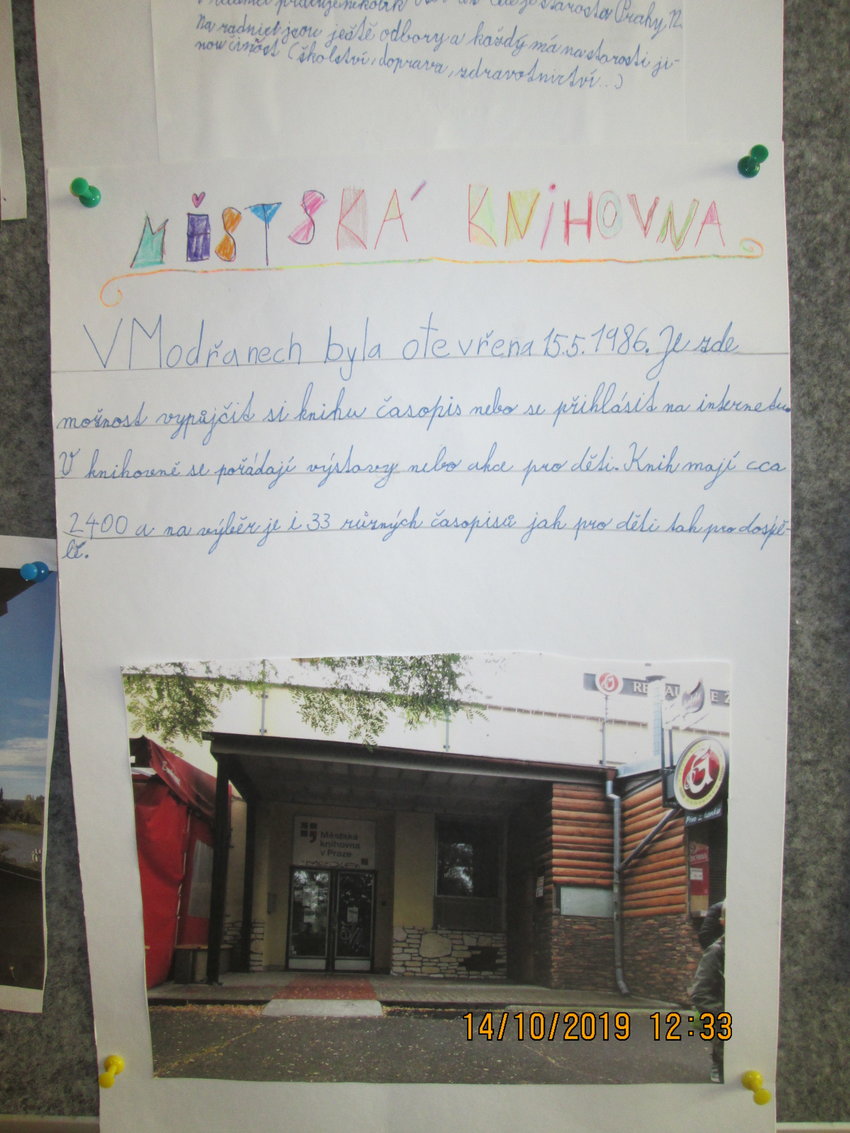 starosta Prahy 12
Na radnici jsou ještě odbory a každý má na starosti ji-
nou činost (školství, doprava, zdravotnictví...)
MĚSTSKÁ KNIHOVNA
V Modřanech byla otevřena 15.5.1986. Je zde
možnost vypůjčit si knihu časopis nebo se přihlásit na internetu.
V knihovně se pořádají výstavy nebo akce pro děti. Knih mají cca
2400 a na výběr je i 33 různých časopisů jak pro děti tak pro dospě-
lé.
Městská
knihovna
v Praze
14/10/2019 12:33